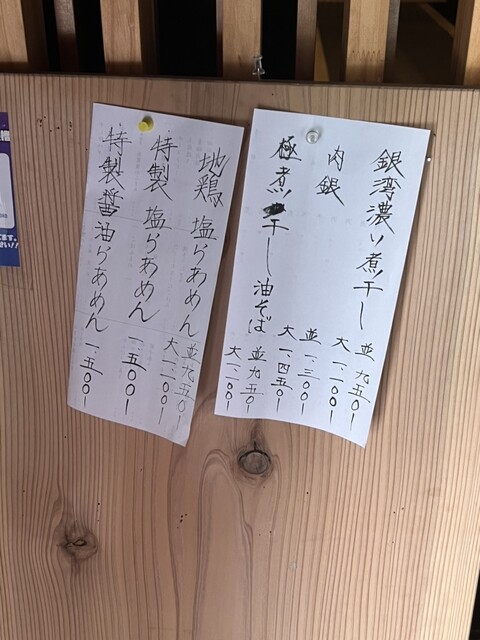 銀湾濃い煮干し
並 九五〇ー
大 一、一〇〇ー
肉銀
並 一、三〇〇ー
大 一、四五〇ー
極煮干し油そば
並 九五〇ー
大 一、一〇〇ー
地鶏 塩らあめん
並 九五〇ー
大 一、一〇〇ー
特製 塩らあめん
一、五〇〇ー
特製醤油らあめん
一、五〇〇ー